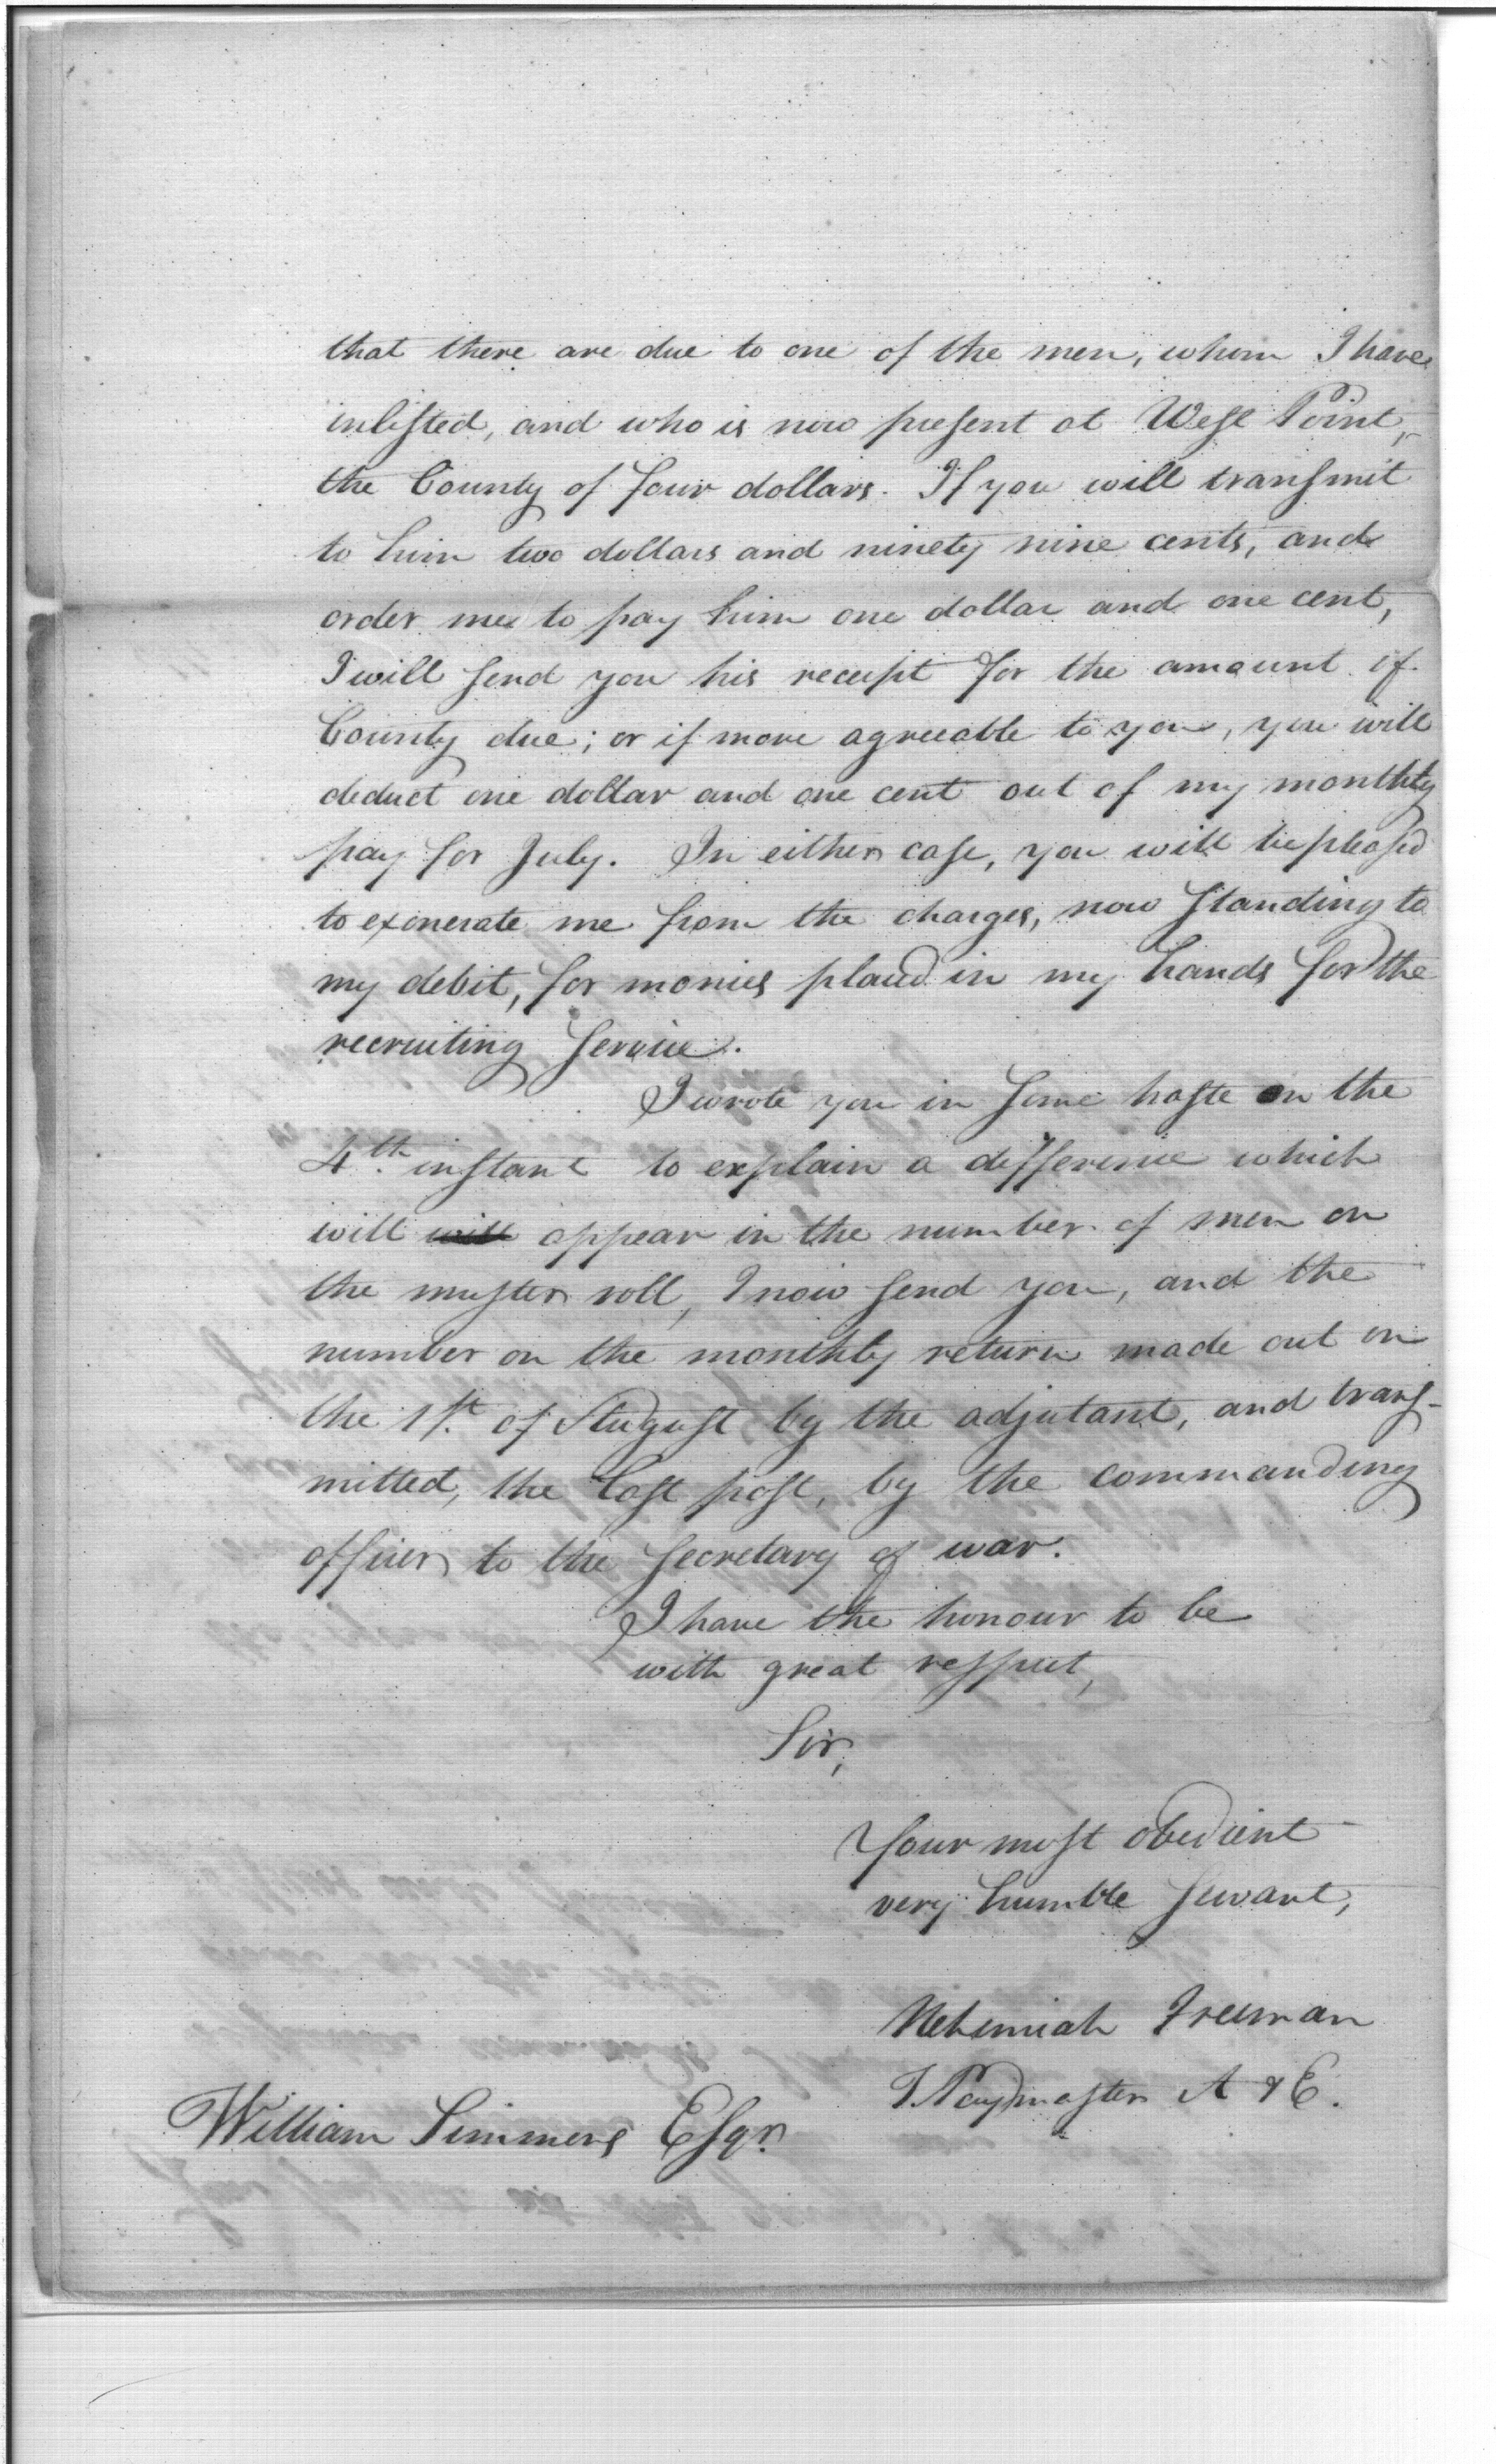 that there are due to one of the men, whom I have
inlisted, and who is now present at West Point,
the bounty of four dollars. If you will transmit
to him two dollars and ninety nine cents, and
order me to pay him one dollar and one cent,
I will send you his receipt for the amount of
bounty due; or if more agreeable to you, you will
deduct one dollar and one cent out of my monthly
pay for July. In either case, you will be pleased
to exonerate me from the charges, now standing to
my debit, for monies placed in my hands for the
recruiting service.
I wrote you in some haste on the
4th. instant to explain a difference which
will will appear in the number of men on
the muster roll, I now send you, and the
number on the monthly return made out on
the 1st. of August by the adjutant, and trans-
mitted, the last post, by the commanding
officer to the secretary of war.
I have the honour to be
with great respect,
Sir,
Your most obedient
very humble servant,
Nehemiah Freeman
Paymaster A & E.
William Simmons Esqr.